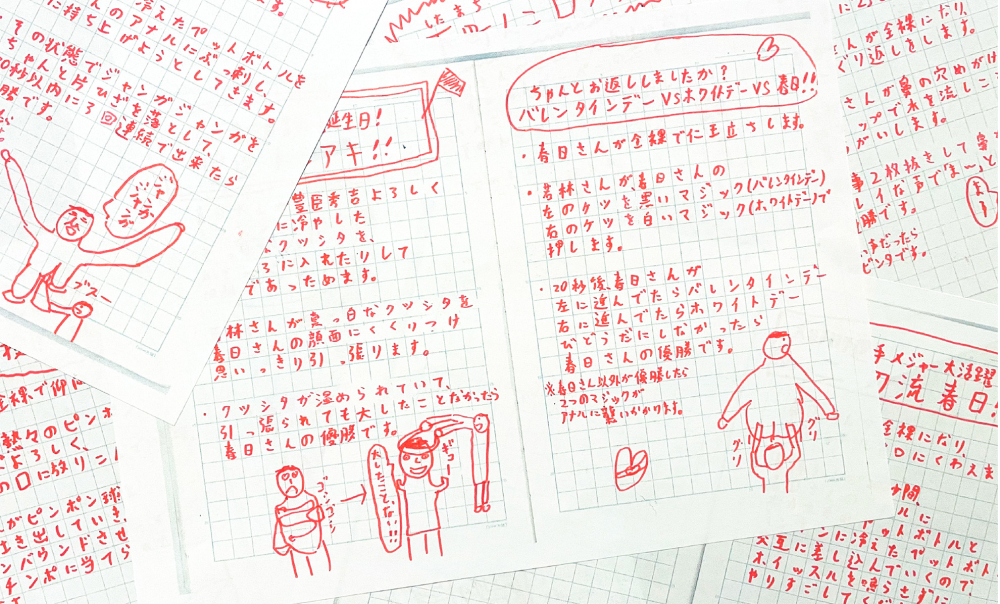 えたペットボトルを
んのアナルにぶっ刺し、
に持ち上げようとしてきます。
その状態でジャンガジャンガを
ちゃんと片ひざを落として、
0秒以内に3回連続で出来たら
勝です。
ジャンガジャンガ
ブスー
したまち
誕生日!
アキ!!
豊臣秀吉よろしく
に冷やした
クツシタを、
ろに入れたりして
であっためます。
林さんが真っ白なクツシタを
春日さんの顔面にくくりつけ
思いっきり引っ張ります。
・クツシタが温められていて、
引っ張られても大したことなかったら
春日さんの優勝です。
ゴシゴシ
大したことない!!
ギュー
ちゃんとお返ししましたか?
バレンタインデーVSホワイトデーVS春日!!
・春日さんが全裸で仁王立ちします。
・若林さんが春日さんの
左のケツを黒いマジック(バレンタインデー)
右のケツを白いマジック(ホワイトデー)で
押します。
・20秒後、春日さんが
左に進んでたらバレンタインデー
右に進んでたらホワイトデー
びどうだにしなかったら
春日さんの優勝です。
※春日さん以外が優勝したら
2つのマジックが
アナルに襲いかかります。
グリ
グリ
んが全裸になり、
ぐり返しをします。
さんが鼻の穴めがけ
ップで水を流しこ
がいします。
2枚抜きして
レイな声で
勝です。
声だったら
ビンタです。
全裸で仰
熱々のピンポ
よろしく、
の口に放りこ
がピンポン球
吐き出していき、
ンバウンドさせ
チンポに当てら
手メジャー大活躍
刀流春日!
全裸になり
口にくわえま
間、
ルに
ンに冷えたペットボトルと
交互に差し込んでいくので、
ホイッスルを鳴らさずに
やりすごしてく